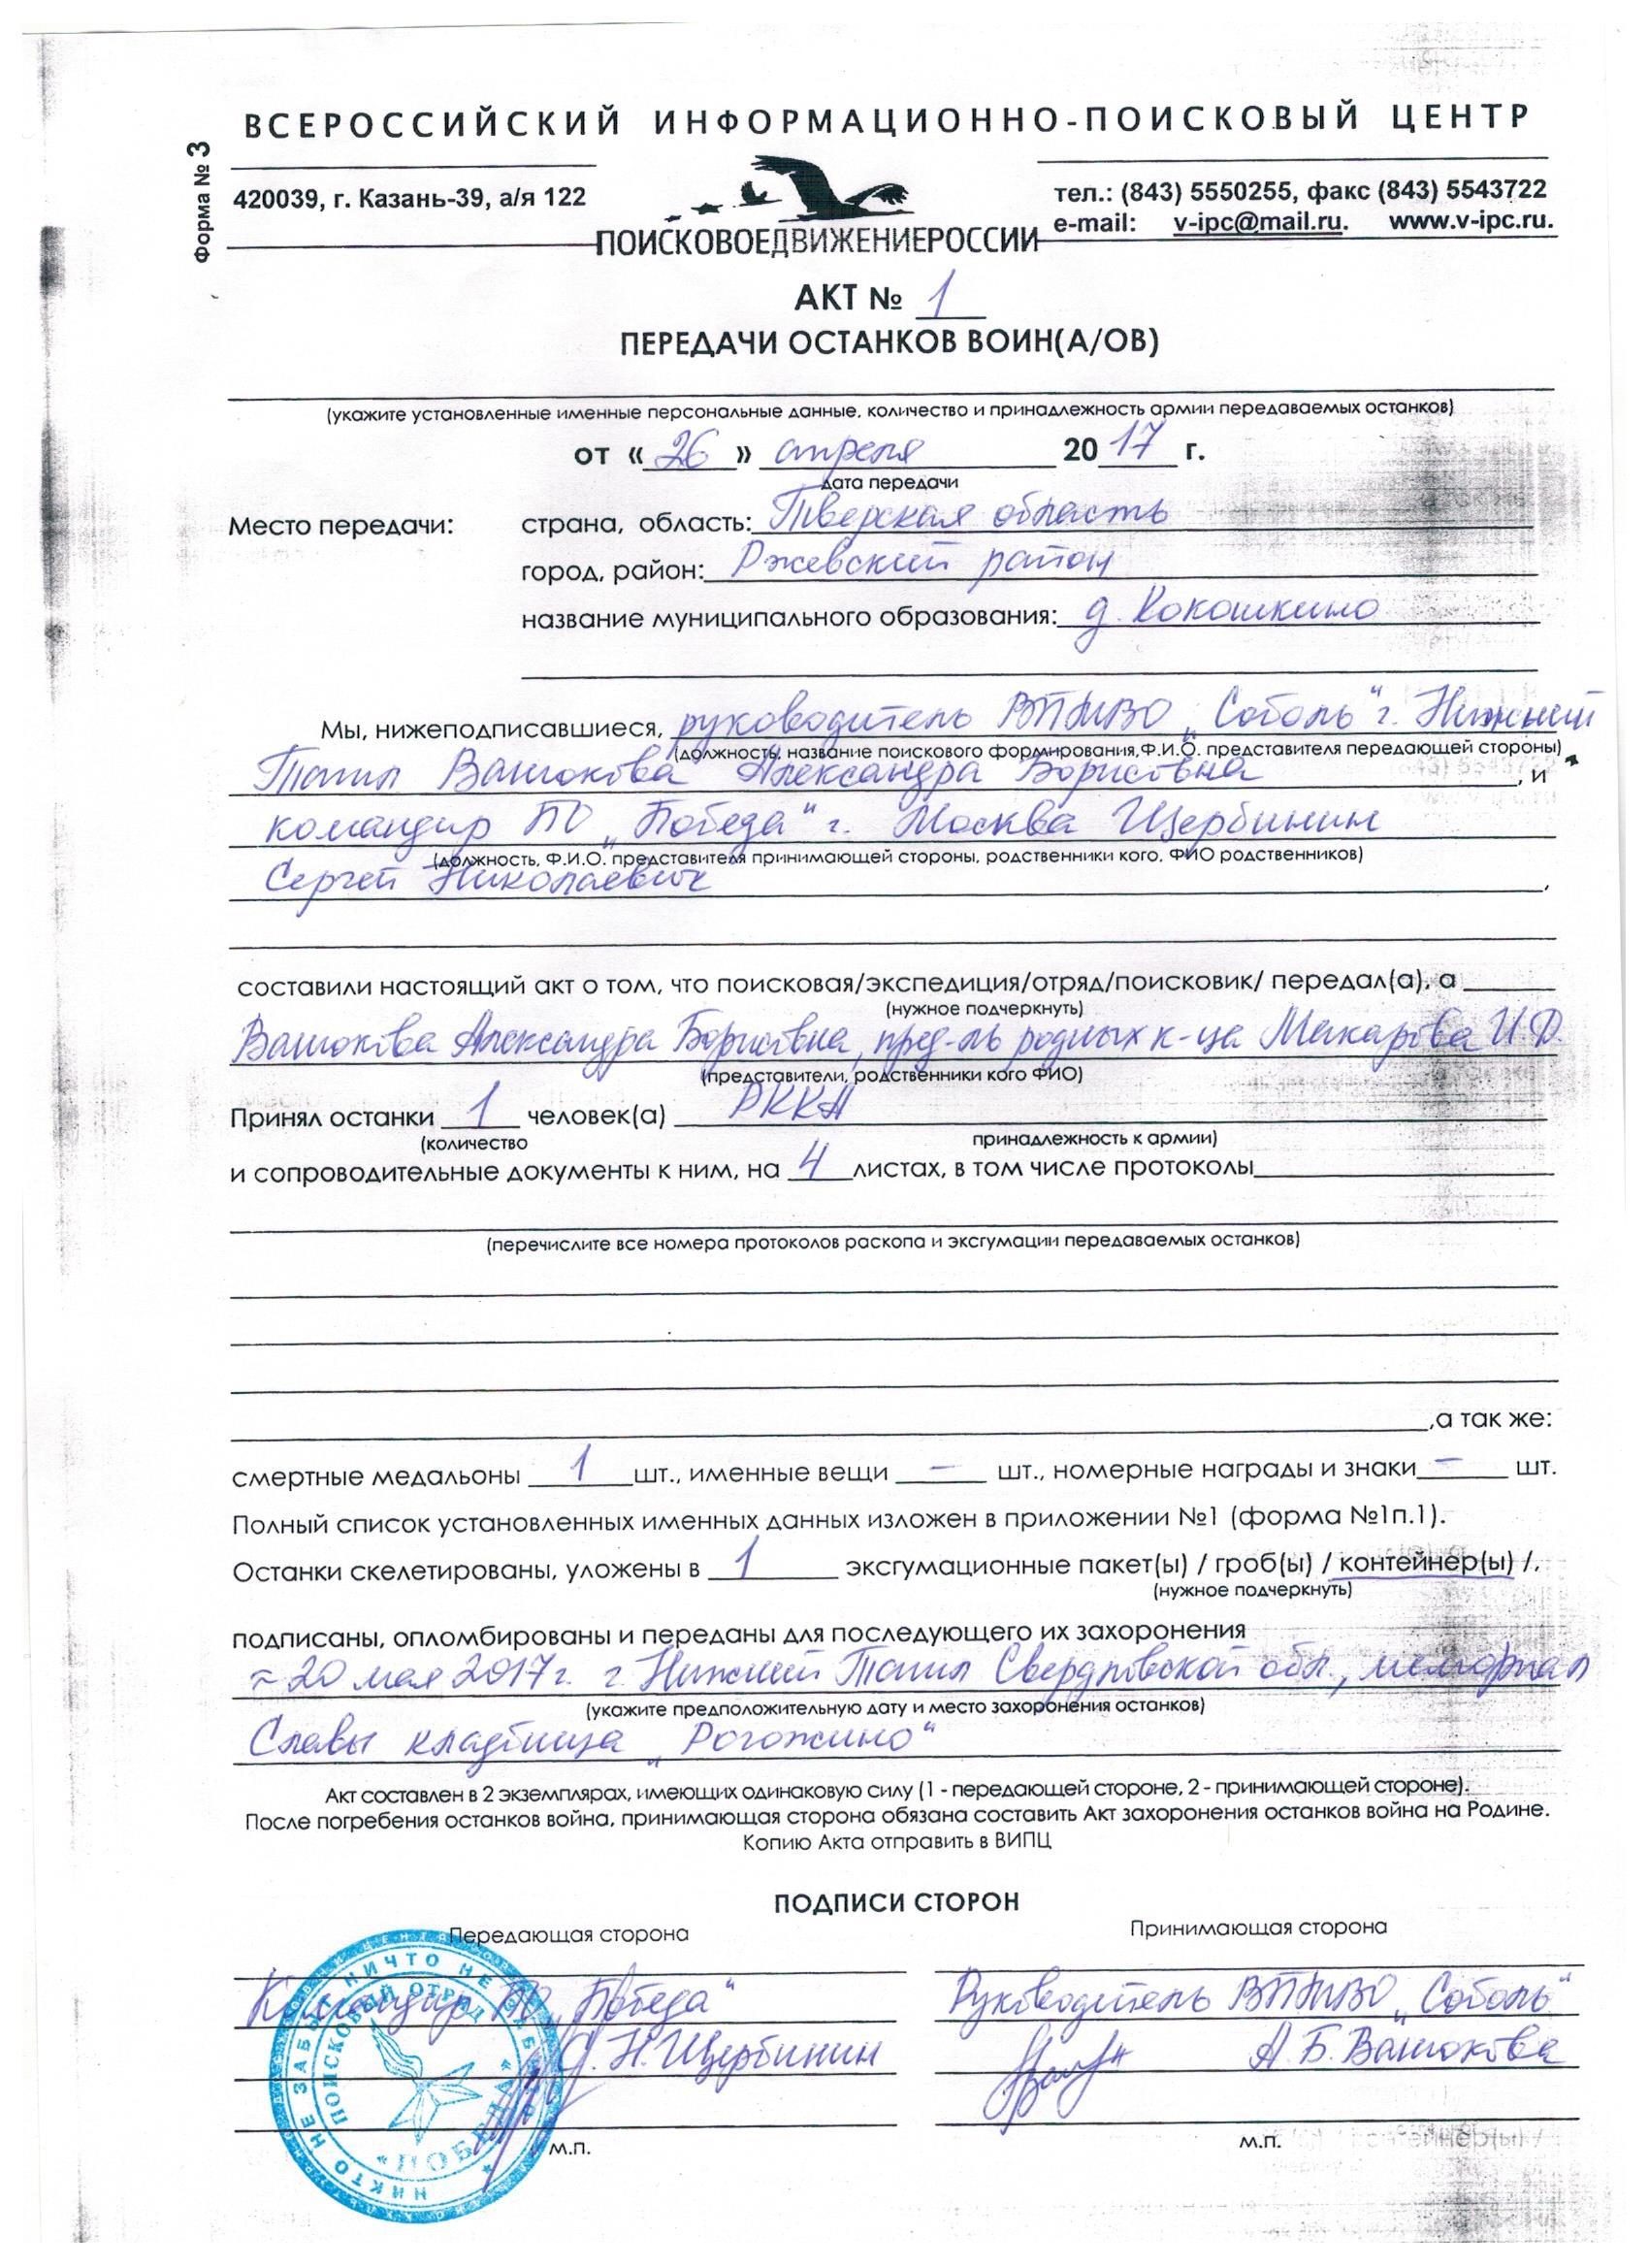 Форма № 3
ВСЕРОССИЙСКИЙ ИНФОРМАЦИОННО-ПОИСКОВЫЙ ЦЕНТР
420039, г. Казань-39, а/я 122
тел.: (843) 5550255, факс (843) 5543722
e-mail: v-ipc@mail.ru. www.v-ipc.ru.
ПОИСКОВОЕДВИЖЕНИЕРОССИИ
АКТ № 1
ПЕРЕДАЧИ ОСТАНКОВ ВОИН(А/ОВ)
(укажите установленные именные персональные данные, количество и принадлежность армии передаваемых останков)
от «26» апреля 2017 г.
дата передачи
Место передачи: страна, область: Тверская область
город, район: Ржевский район
название муниципального образования: д. Кокошкино
Мы, нижеподписавшиеся, руководитель ВПНВО „Соболь" г. Нижний
(должность, название поискового формирования,Ф.И.О. представителя передающей стороны)
Тагил Ванюкова Александра Борисовна, и
командир ПО „Победа" г. Москва Щербинин
(должность, Ф.И.О. представителя принимающей стороны, родственники кого, ФИО родственников)
Сергей Николаевич,
составили настоящий акт о том, что поисковая/экспедиция/отряд/поисковик/ передал(а), а
(нужное подчеркнуть)
Ванюкова Александра Борисовна, пред-ль родных к-ца Макарова И.Д.
(представители, родственники кого ФИО)
Принял останки 1 человек(а) РККА
(количество принадлежность к армии)
и сопроводительные документы к ним, на 4 листах, в том числе протоколы
(перечислите все номера протоколов раскопа и эксгумации передаваемых останков)
,а так же:
смертные медальоны 1 шт., именные вещи – шт., номерные награды и знаки – шт.
Полный список установленных именных данных изложен в приложении №1 (форма №1п.1).
Останки скелетированы, уложены в 1 эксгумационные пакет(ы) / гроб(ы) / контейнер(ы) /,
(нужное подчеркнуть)
подписаны, опломбированы и переданы для последующего их захоронения
~ 20 мая 2017г. г. Нижний Тагил Свердловской обл., мемориал
(укажите предположительную дату и место захоронения останков)
Славы кладбища „Рогожино"
Акт составлен в 2 экземплярах, имеющих одинаковую силу (1 - передающей стороне, 2 - принимающей стороне).
После погребения останков война, принимающая сторона обязана составить Акт захоронения останков война на Родине.
Копию Акта отправить в ВИПЦ
ПОДПИСИ СТОРОН
Передающая сторона
Принимающая сторона
Командир ПО „Победа"
Руководитель ВПНВО „Соболь"
С.Н.Щербинин
А.Б.Ванюкова
м.п.
м.п.
НИКТО НЕ ЗАБЫТ НИЧТО НЕ ЗАБЫТО
ПОИСКОВЫЙ ОТРЯД
«ПОБЕДА»